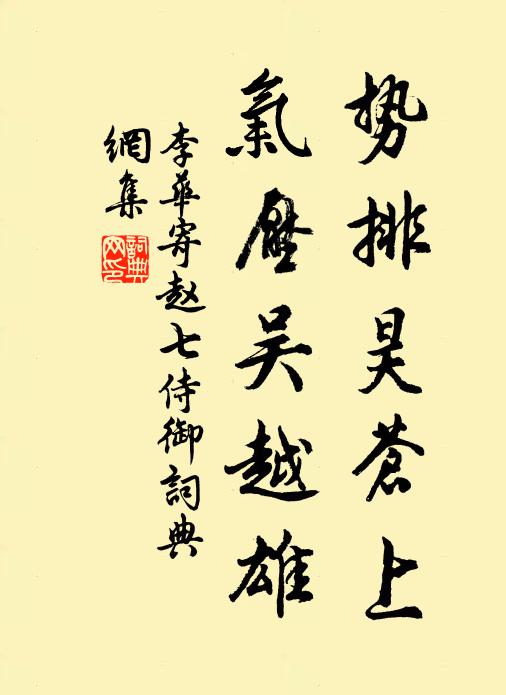 势排昊蒼上
氣壓吴越雄
李華寄赵七侍御詞典
網集
詞典
网印